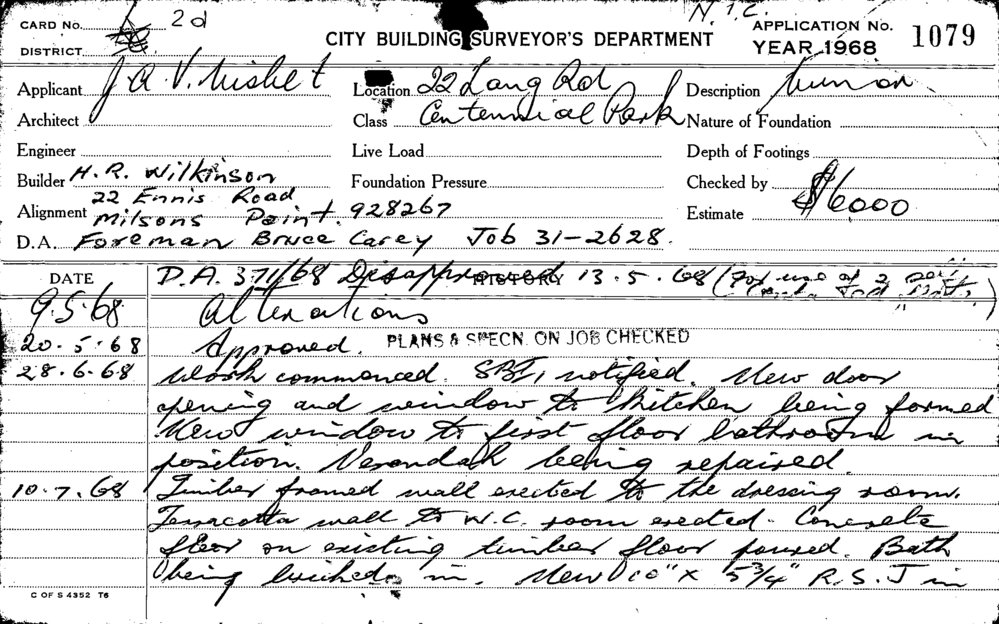 CARD No. 2d N.T.C. APPLICATION No. 1079
DISTRICT CITY BUILDING SURVEYOR'S DEPARTMENT YEAR 1968
Applicant J A V. Nisbet Location 22 Lang Rd Description
Architect Class Centennial Park Nature of Foundation
Engineer Live Load Depth of Footings
Builder H. R. Wilkinson Foundation Pressure Checked by
22 Ennis Road
Alignment Milsons Point. 928267 Estimate $6000
D.A. Foreman Bruce Carey Job 31-2628.
DATE HISTORY
D.A. 371/68 Disapproved 13.5.68 (For use of 2
9.5.68 Alterations
20.5.68 Approved. PLANS & SPECN. ON JOB CHECKED
28.6.68 Work commenced. notified. New door
opening and window to kitchen being formed
New window to first floor bathroom in
position. Verandah being repaired.
10.7.68 Timber framed wall erected to the dressing room.
Terracotta wall to W.C. room erected. Concrete
floor on existing timber floor poured. Bath
being bricked in. New 10" x 5¾" R.S.J in
C OF S 4352 T6